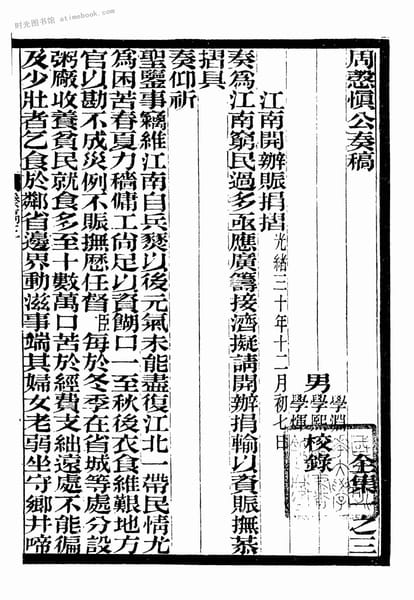 时光图书馆 atimebook.com
周慤慎公奏稿
全集之三
男
學淵
學熙
學煇
校錄
江南開辦賑捐摺 光緒三十年十二月初七日
奏爲江南窮民過多亟應廣籌接濟擬請開辦捐輸以資賑撫恭
摺具
奏仰祈
聖鑒事竊維江南自兵燹以後元氣未能盡復江北一帶民情尤
爲困苦春夏力穡傭工尚足以資餬口一至秋後衣食維艱地方
官以勘不成災例不賑撫歷任督臣每於冬季在省城等處分設
粥廠收養貧民就食多至十數萬口苦於經費支絀遠處不能徧
及少壯者乞食於鄰省邊界動滋事端其婦女老弱坐守鄉井啼